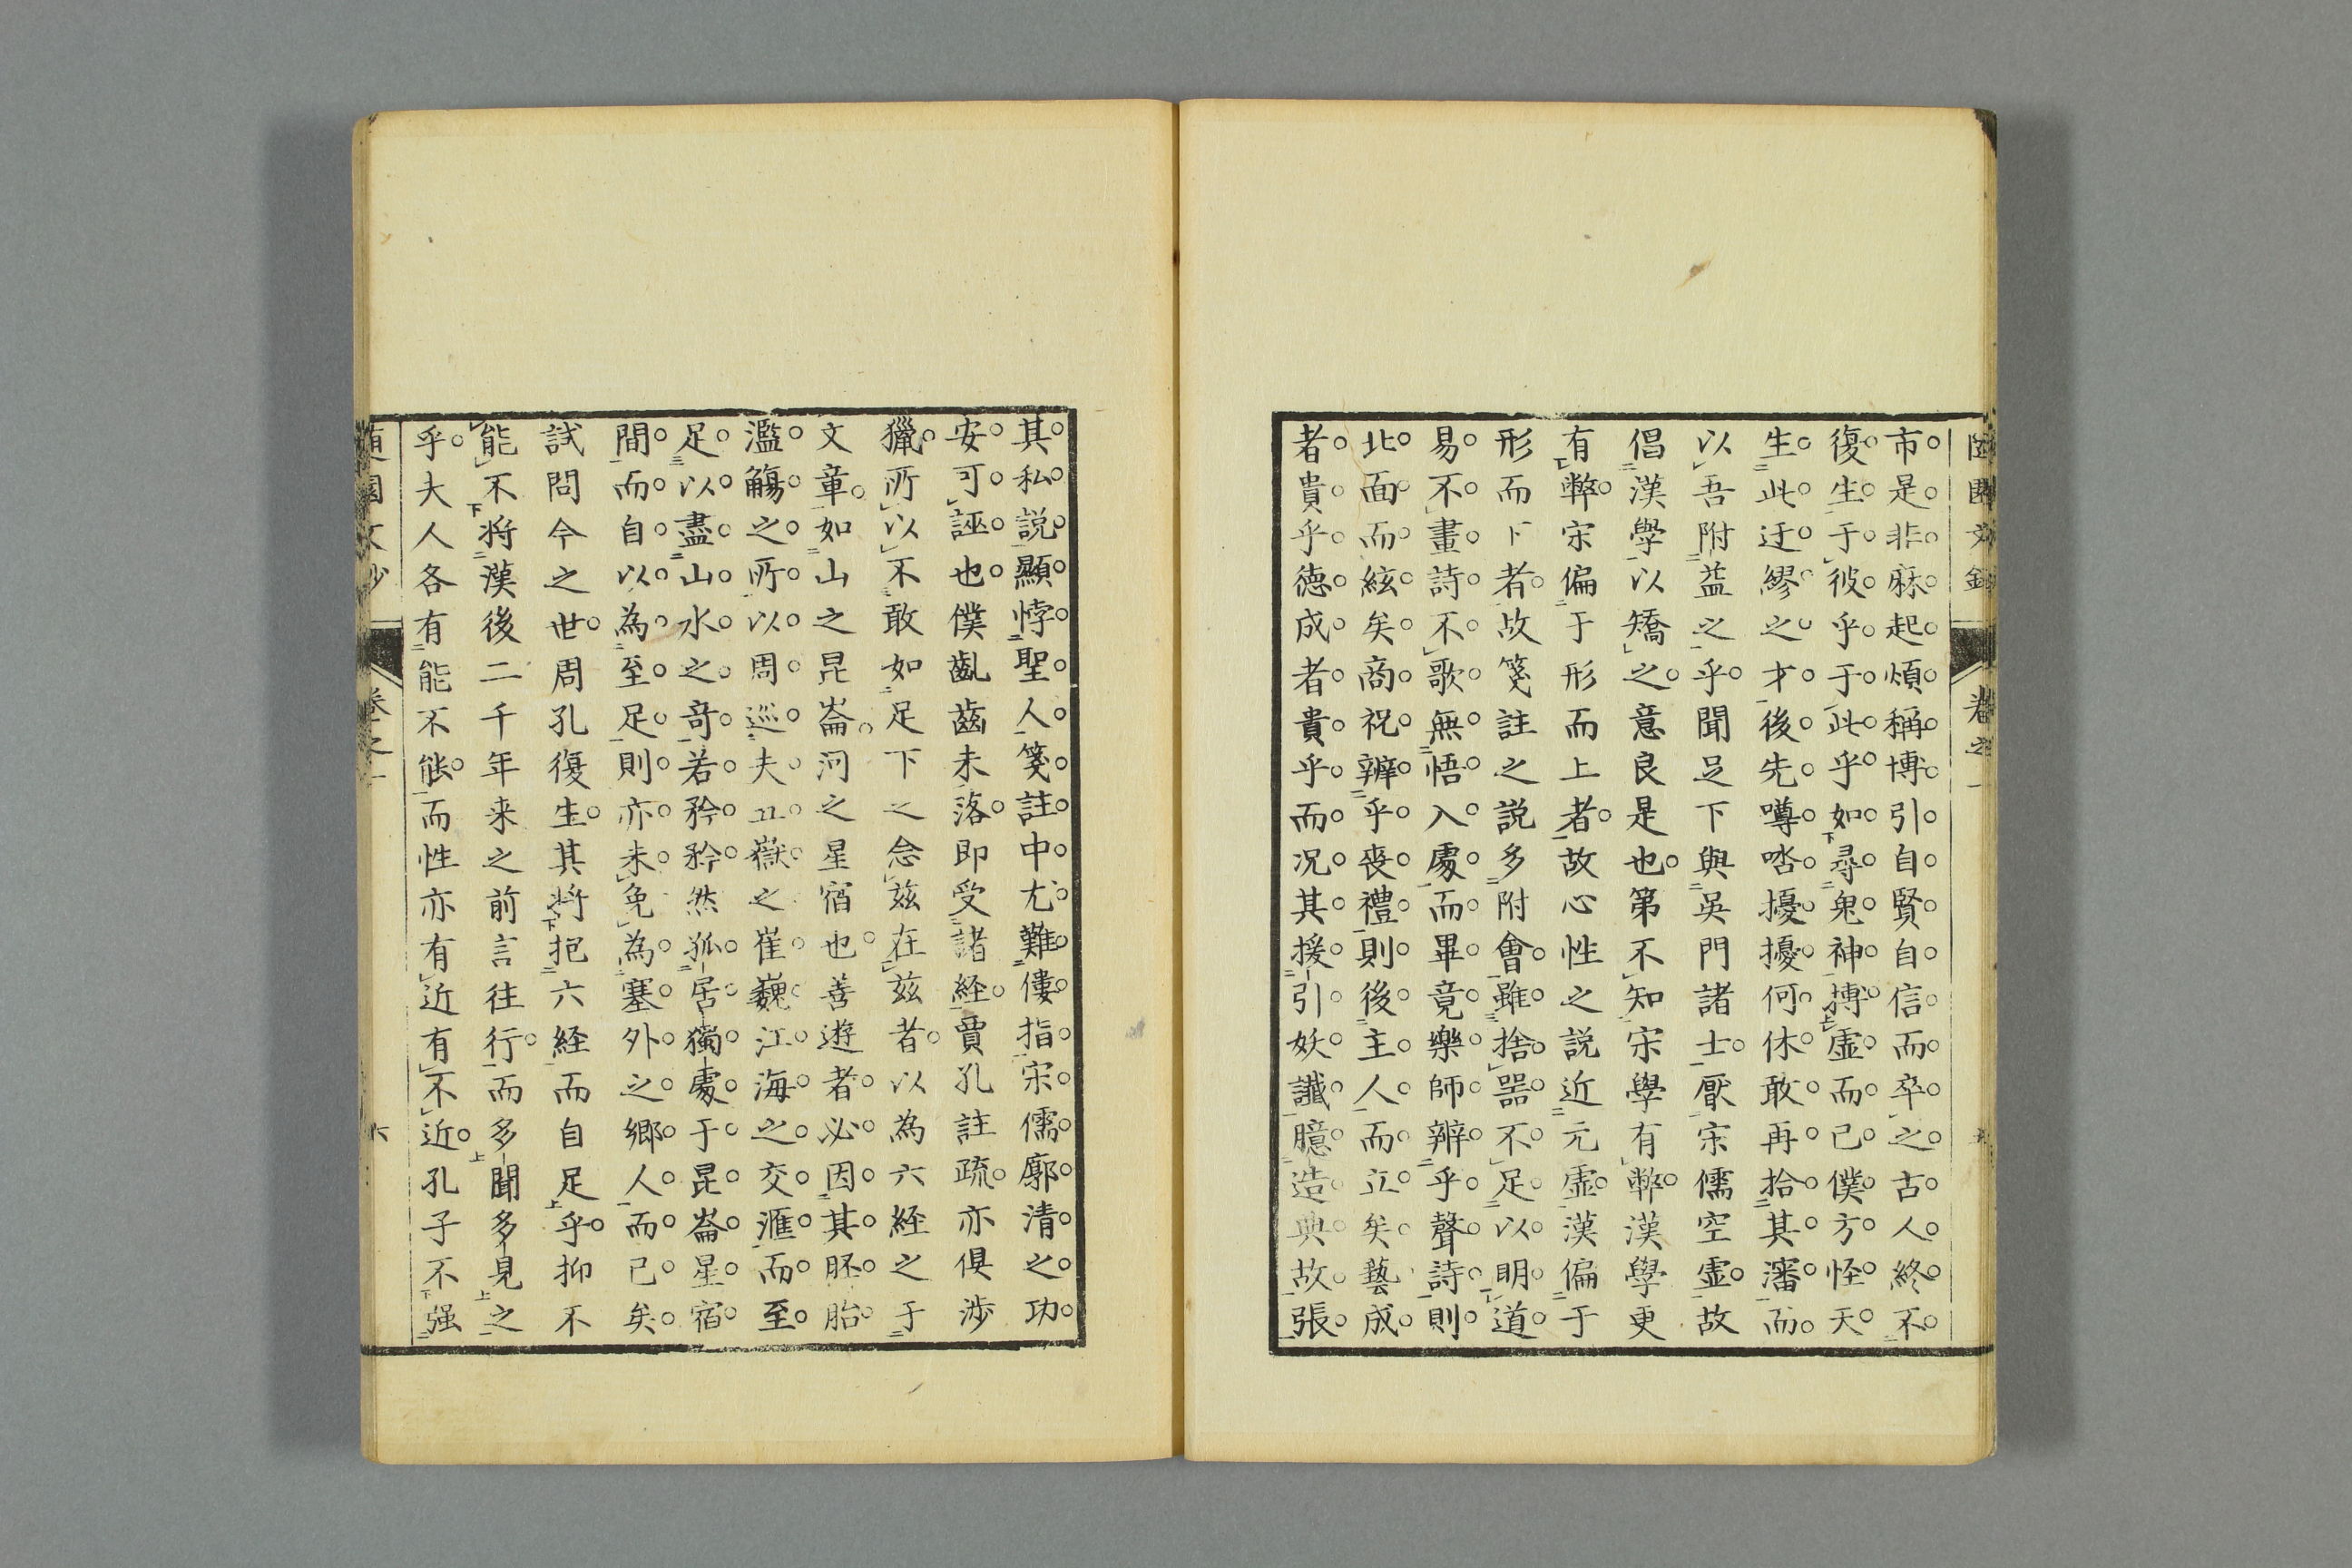 市是非麻起煩稱博引自賢自信而卒之古人終不
復生于彼乎于此乎如尋鬼神搏虛而已僕方怪天
生此迂繆之才後先噂喒擾擾何休敢再拾其瀋而
以吾附益之乎聞足下與吳門諸士厭宋儒空虛故
倡漢學以矯之意良是也第不知宋學有弊漢學更
有弊宋偏于形而上者故心性之説近元虛漢偏于
形而下者故箋註之説多附會雖捨器不足以明道
易不畫詩不歌無悟入處而畢竟樂師辨乎聲詩則
北面而絃矣商祝辨乎喪禮則後主人而立矣藝成
者貴乎德成者貴乎而况其援引妖讖臆造典故張
其私説顯悖聖人箋註中尤難僂指宋儒廓清之功
安可誣也僕齓齒未落即受諸経賈孔註疏亦俱涉
獵所以不敢如足下之念兹在兹者以為六經之于
文章如山之昆崙河之星宿也善遊者必因其胚胎
濫觴之所以周巡夫五嶽之崔巍江海之交滙而至
足以盡山水之竒若矜矜然孤居獨處于昆崙星宿
間而自以為至足則亦未免為塞外之鄉人而已矣
試問今之世周孔復生其將抱六経而自足乎抑不
能不将漢後二千年来之前言往行而多聞多見之
乎夫人各有能不能而性亦有近有不近孔子不强
園文鈔
卷之一
六